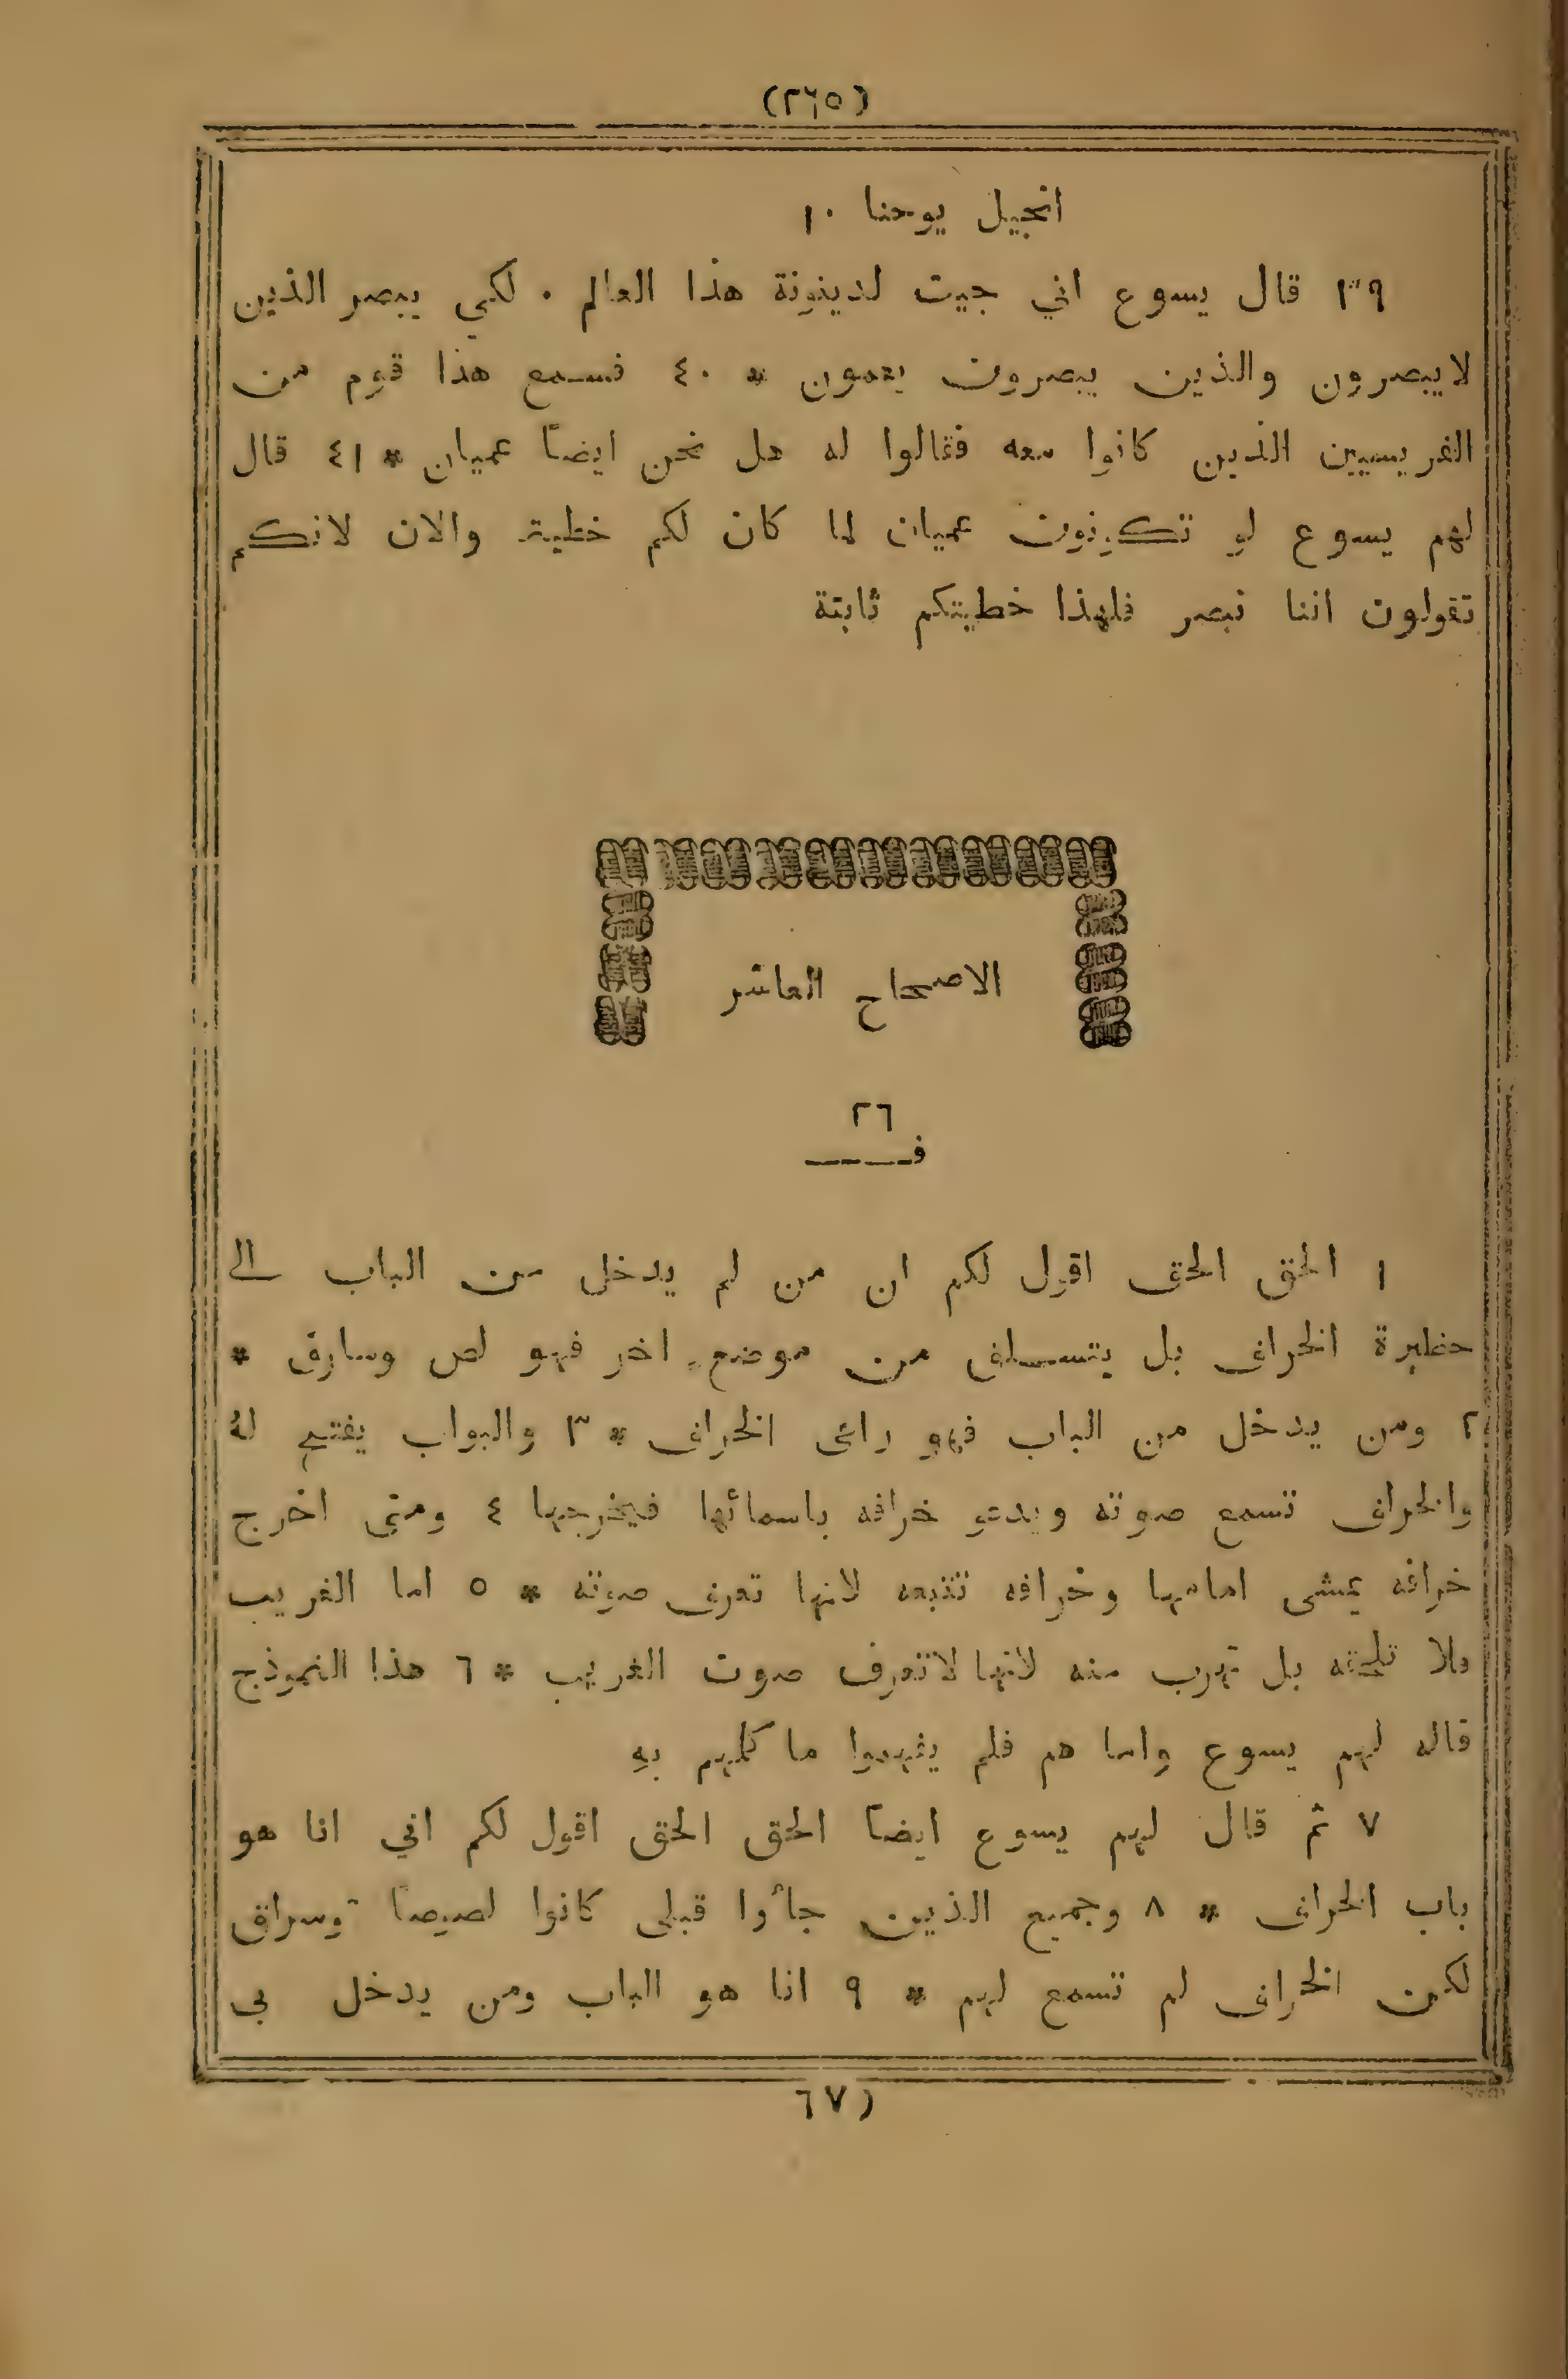 (٢٦٥)
انجيل يوحنا ١٠
٣٩ قال يسوع اني جيت لدينونة هذا العالم . لكي يبصر الذين
لايبصرون والذين يبصرون يعمون * ٤٠ فسمع هذا قوم من
الفريسيين الذين كانوا معه فقالوا له هل نحن ايضاً عميان * ٤١ قال
لهم يسوع لو تكونون عميان لما كان لكم خطية والان لانكم
تقولون اننا نبصر فلهذا خطيتكم ثابتة
الاصحاح العاشر
٢٦
ف
١ الحق الحق اقول لكم ان من لم يدخل من الباب الى
حظيرة الخراف بل يتسلق من موضع اخر فهو لص وسارق *
٢ ومن يدخل من الباب فهو راعى الخراف * ٣ والبواب يفتح لهُ
والخراف تسمع صوته ويدعو خرافه باسمائها فيخرجها ٤ ومتى اخرج
خرافه يمشى امامها وخرافه تتبعه لانها تعرف صوته * ٥ اما الغريب
فلا تلحقه بل تهرب منه لانها لاتعرف صوت الغريب * ٦ هذا النموذج
قاله لهم يسوع واما هم فلم يفهموا ما كلمهم بهِ
٧ ثم قال لهم يسوع ايضاً الحق الحق اقول لكم اني انا هو
باب الخراف * ٨ وجميع الذين جأوا قبلى كانوا لصوصاً وسراق
لكن الخراف لم تسمع لهم * ٩ انا هو الباب ومن يدخل بى
٦٧)